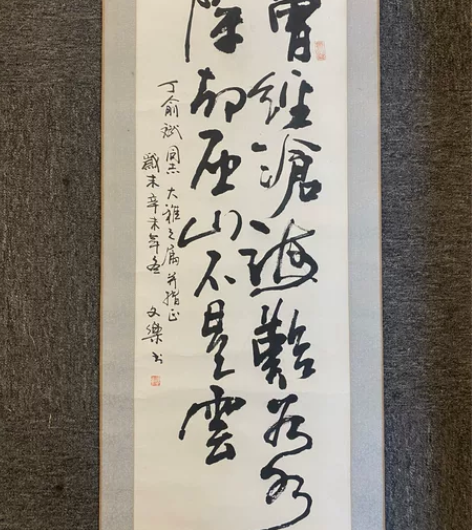 曾經滄海難為水
除却巫山不是雲
丁俞斌同志大雅之属并指正
歲末辛未年冬
文樂书